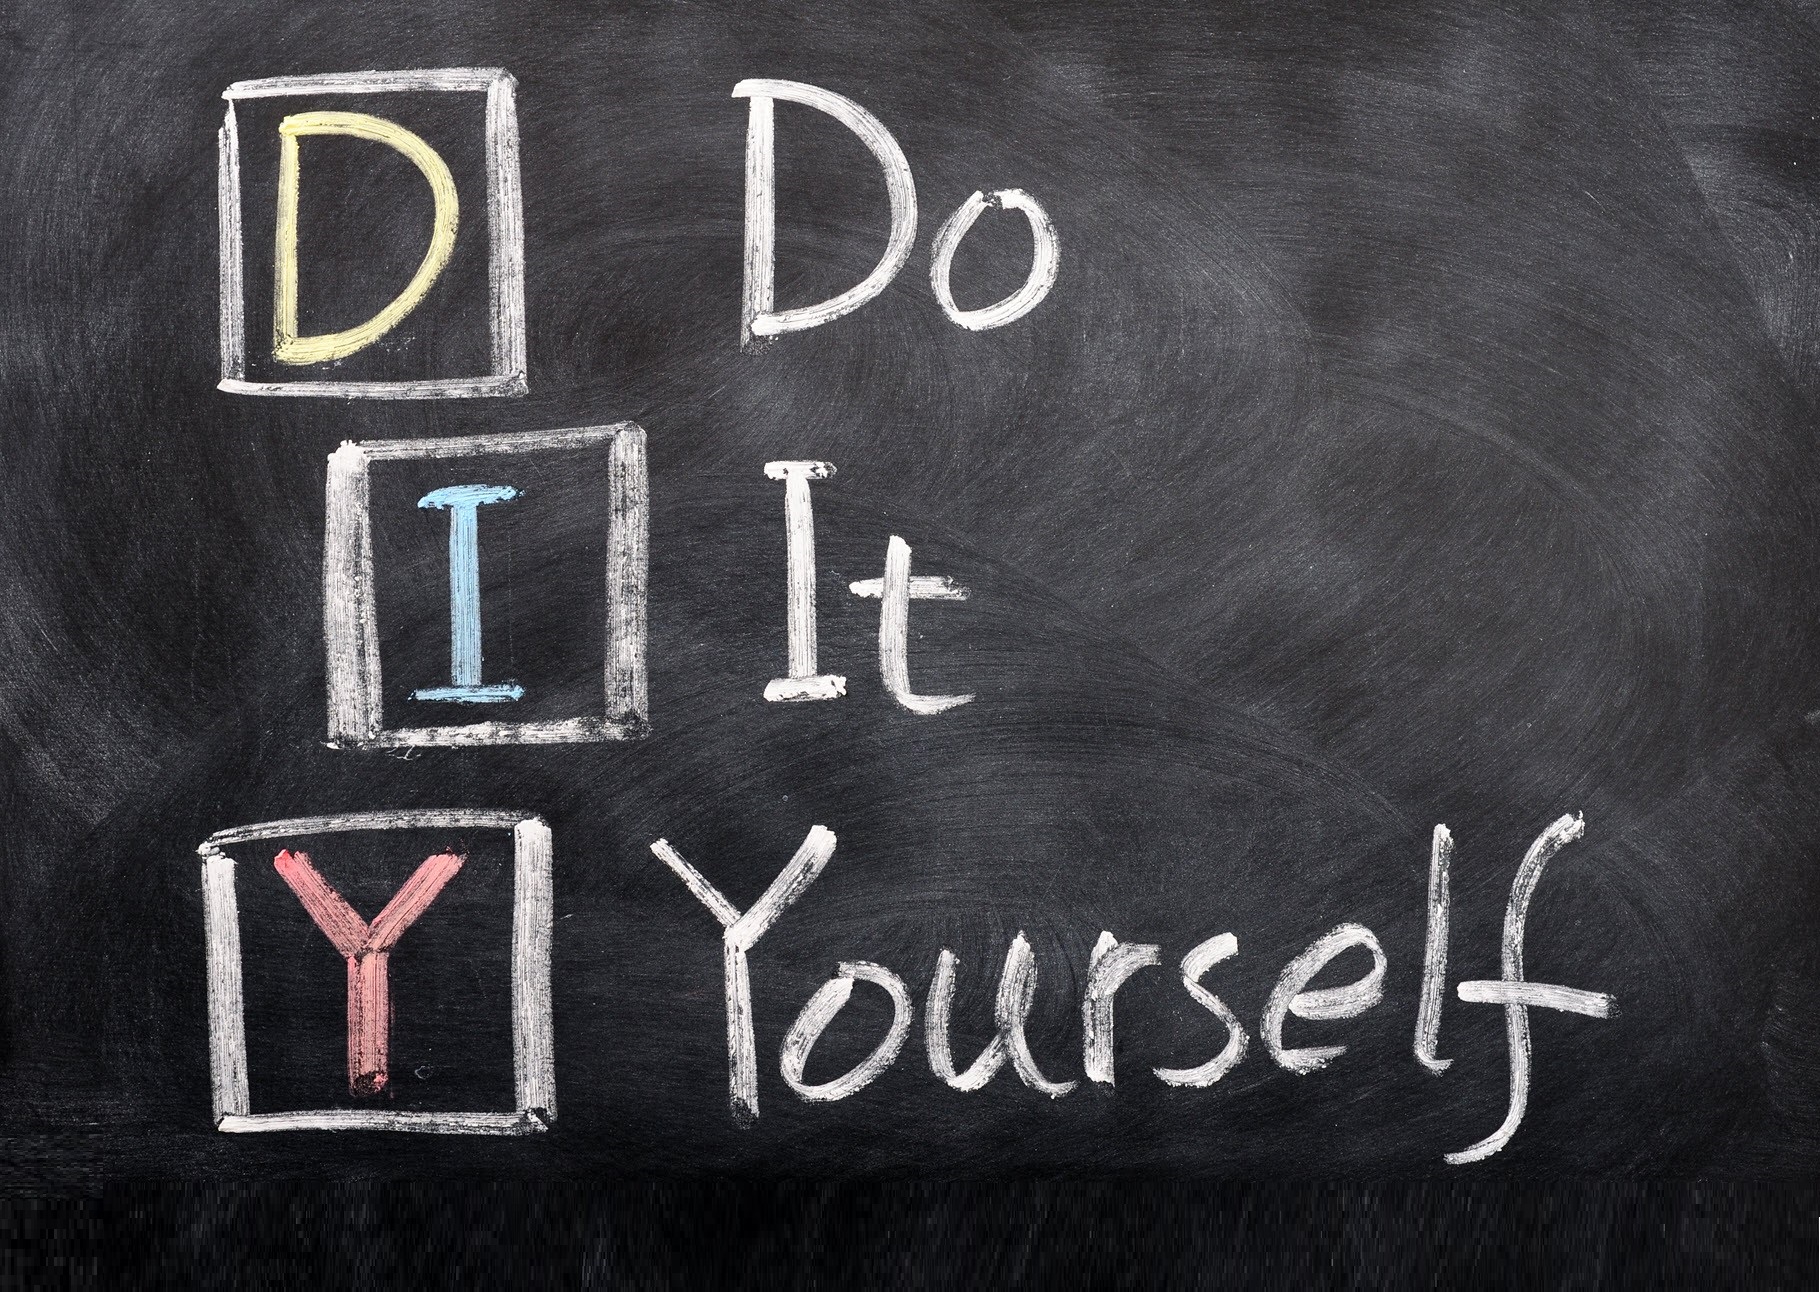 D Do
I It
Y Yourself